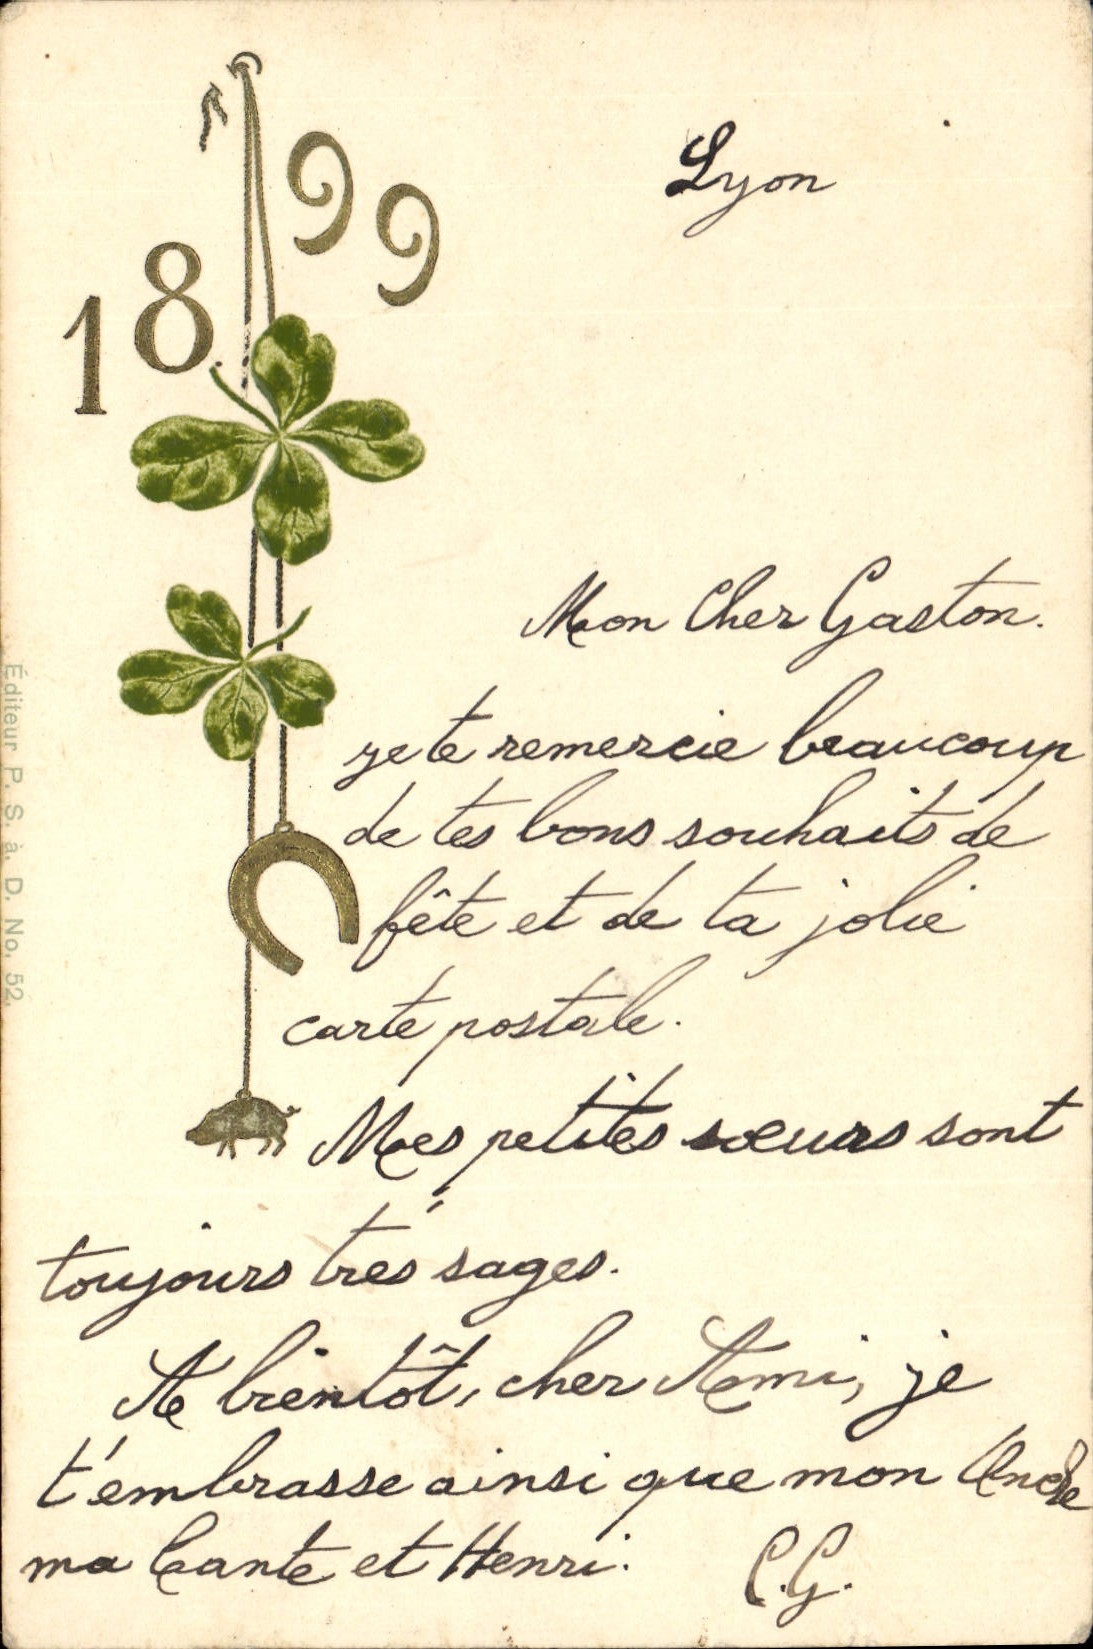 1899
Lyon
Mon Cher Gaston.
je te remercie beaucoup
de tes bons souhaits de
fête et de ta jolie
carte postale.
Mes petites sœurs sont
toujours très sages.
A bientôt, cher Ami, je
t'embrasse ainsi que mon Oncle
ma Tante et Henri.
C.G.
Éditeur P. S. à. D. No. 52.